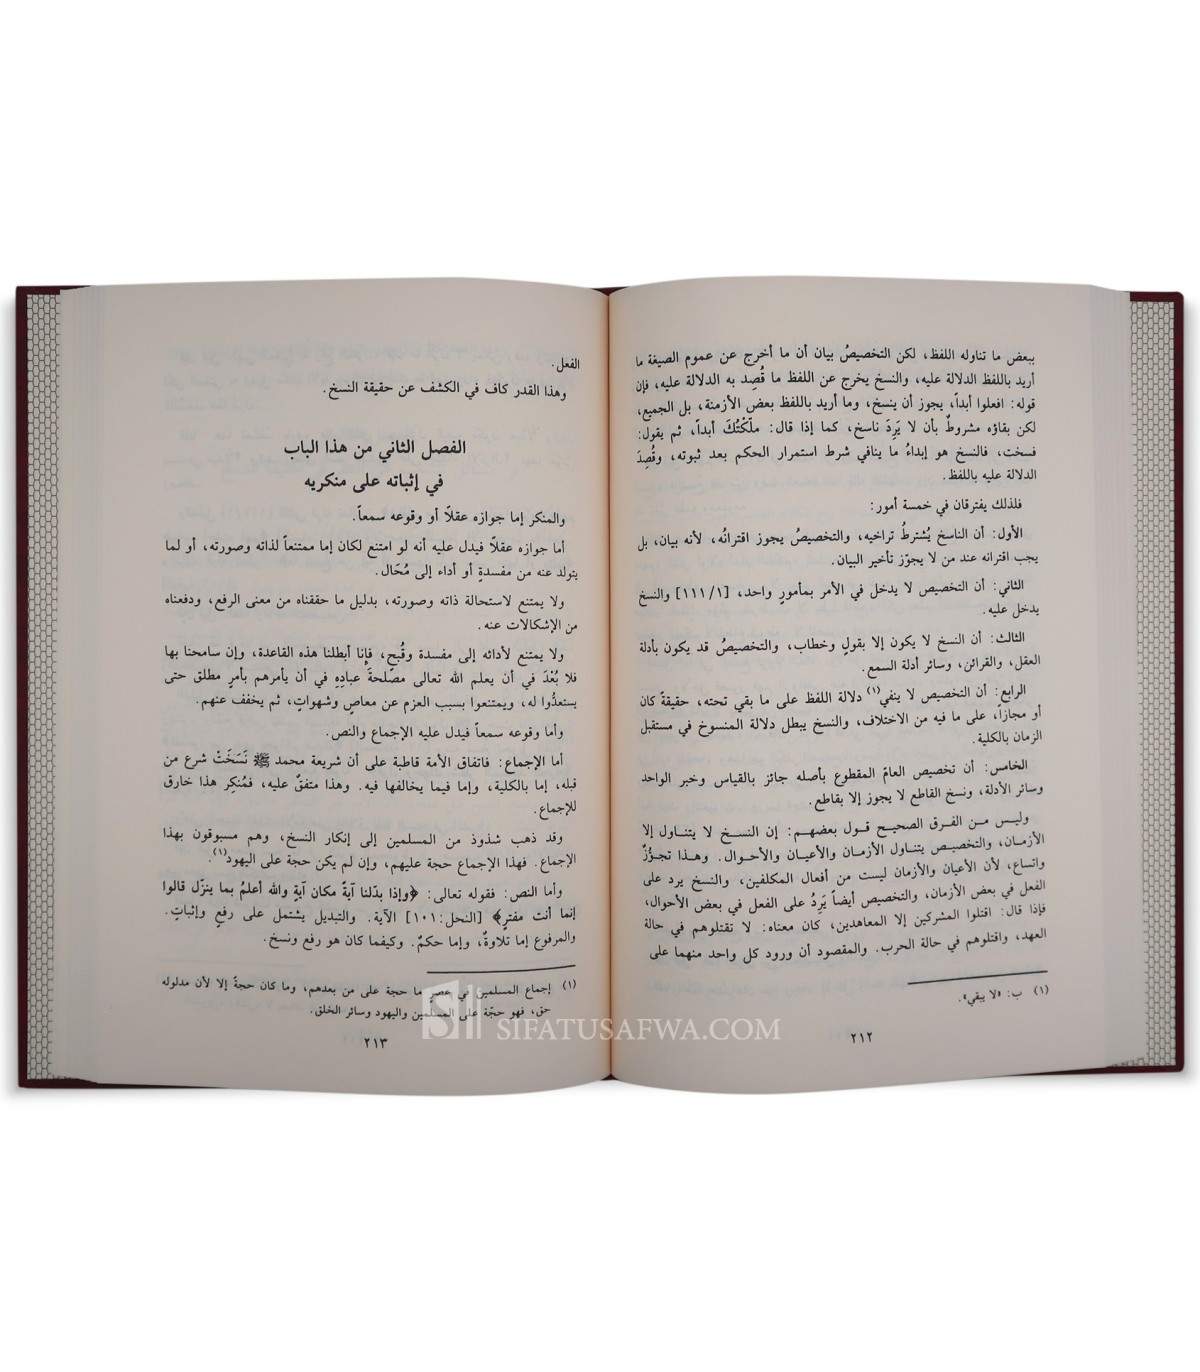 ببعض ما تناوله اللفظ، لكن التخصيصُ بيان أن ما أخرج عن عموم الصيغة ما
أريد باللفظ الدلالة عليه، والنسخ يخرج عن اللفظ ما قُصِد به الدلالة عليه، فإن
قوله: افعلوا أبداً، يجوز أن ينسخ، وما أريد باللفظ بعض الأزمنة، بل الجميع،
لكن بقاؤه مشروطٌ بأن لا يَرِدَ ناسخ، كما إذا قال: ملّكْتُكَ أبداً، ثم يقول:
فسخت، فالنسخ هو إبداءُ ما ينافي شرط استمرار الحكم بعد ثبوته، وقُصِدَ
الدلالة عليه باللفظ.
فلذلك يفترقان في خمسة أمور:
الأول: أن الناسخ يُشترطُ تراخيه، والتخصيصُ يجوز اقترانُه، لأنه بيان، بل
يجب اقترانه عند من لا يجوّز تأخير البيان.
الثاني: أن التخصيص لا يدخل في الأمر بمأمورٍ واحد، [١١١/١] والنسخ
يدخل عليه.
الثالث: أن النسخ لا يكون إلا بقولٍ وخطاب، والتخصيصُ قد يكون بأدلة
العقل، والقرائن، وسائر أدلة السمع.
الرابع: أن التخصيص لا ينفي(١) دلالة اللفظ على ما بقي تحته، حقيقةً كان
أو مجازاً، على ما فيه من الاختلاف، والنسخ يبطل دلالة المنسوخ في مستقبل
الزمان بالكلية.
الخامس: أن تخصيص العامّ المقطوع بأصله جائز بالقياس وخبر الواحد
وسائر الأدلة، ونسخ القاطع لا يجوز إلا بقاطع.
وليس من الفرق الصحيح قول بعضهم: إن النسخ لا يتناول إلا
الأزمان، والتخصيص يتناول الأزمان والأعيان والأحوال. وهذا تجوُّزٌ
واتساع، لأن الأعيان والأزمان ليست من أفعال المكلفين، والنسخ يرد على
الفعل في بعض الأزمان، والتخصيص أيضاً يَرِدُ على الفعل في بعض الأحوال،
فإذا قال: اقتلوا المشركين إلا المعاهدين، كان معناه: لا تقتلوهم في حالة
العهد، واقتلوهم في حالة الحرب. والمقصود أن ورود كل واحد منهما على
(١) ب: «لا يبقي».
٢١٢
الفعل.
وهذا القدر كاف في الكشف عن حقيقة النسخ.
الفصل الثاني من هذا الباب
في إثباته على منكريه
والمنكر إما جوازه عقلاً أو وقوعه سمعاً.
أما جوازه عقلاً فيدل عليه أنه لو امتنع لكان إما ممتنعاً لذاته وصورته، أو لما
يتولد عنه من مفسدةٍ أو أداء إلى مُحَال.
ولا يمتنع لاستحالة ذاته وصورته، بدليل ما حققناه من معنى الرفع، ودفعناه
من الإشكالات عنه.
ولا يمتنع لأدائه إلى مفسدة وقُبحٍ، فإنا أبطلنا هذه القاعدة، وإن سامحنا بها
فلا بُعْدَ في أن يعلم الله تعالى مصلحةَ عبادِهِ في أن يأمرهم بأمرٍ مطلق حتى
يستعدُّوا له، ويمتنعوا بسبب العزم عن معاصٍ وشهواتٍ، ثم يخفف عنهم.
وأما وقوعه سمعاً فيدل عليه الإجماع والنص.
أما الإجماع: فاتفاق الأمة قاطبة على أن شريعة محمد ﷺ نَسَخَتْ شرع من
قبله، إما بالكلية، وإما فيما يخالفها فيه. وهذا متفقٌ عليه، فمُنكِر هذا خارق
للإجماع.
وقد ذهب شذوذ من المسلمين إلى إنكار النسخ، وهم مسبوقون بهذا
الإجماع. فهذا الإجماع حجة عليهم، وإن لم يكن حجة على اليهود(١).
وأما النص: فقوله تعالى: ﴿وإذا بدّلنا آيةً مكان آيةٍ والله أعلمُ بما ينزّل قالوا
إنما أنت مفترٍ﴾ [النحل:١٠١] الآية. والتبديل يشتمل على رفعٍ وإثباتٍ.
والمرفوع إما تلاوةٌ، وإما حكمٌ. وكيفما كان هو رفع ونسخ.
(١) إجماع المسلمين في عصرٍ ما حجة على من بعدهم، وما كان حجةً إلا لأن مدلوله
حق، فهو حجّة على المسلمين واليهود وسائر الخلق.
٢١٣
SIFATUSAFWA.COM